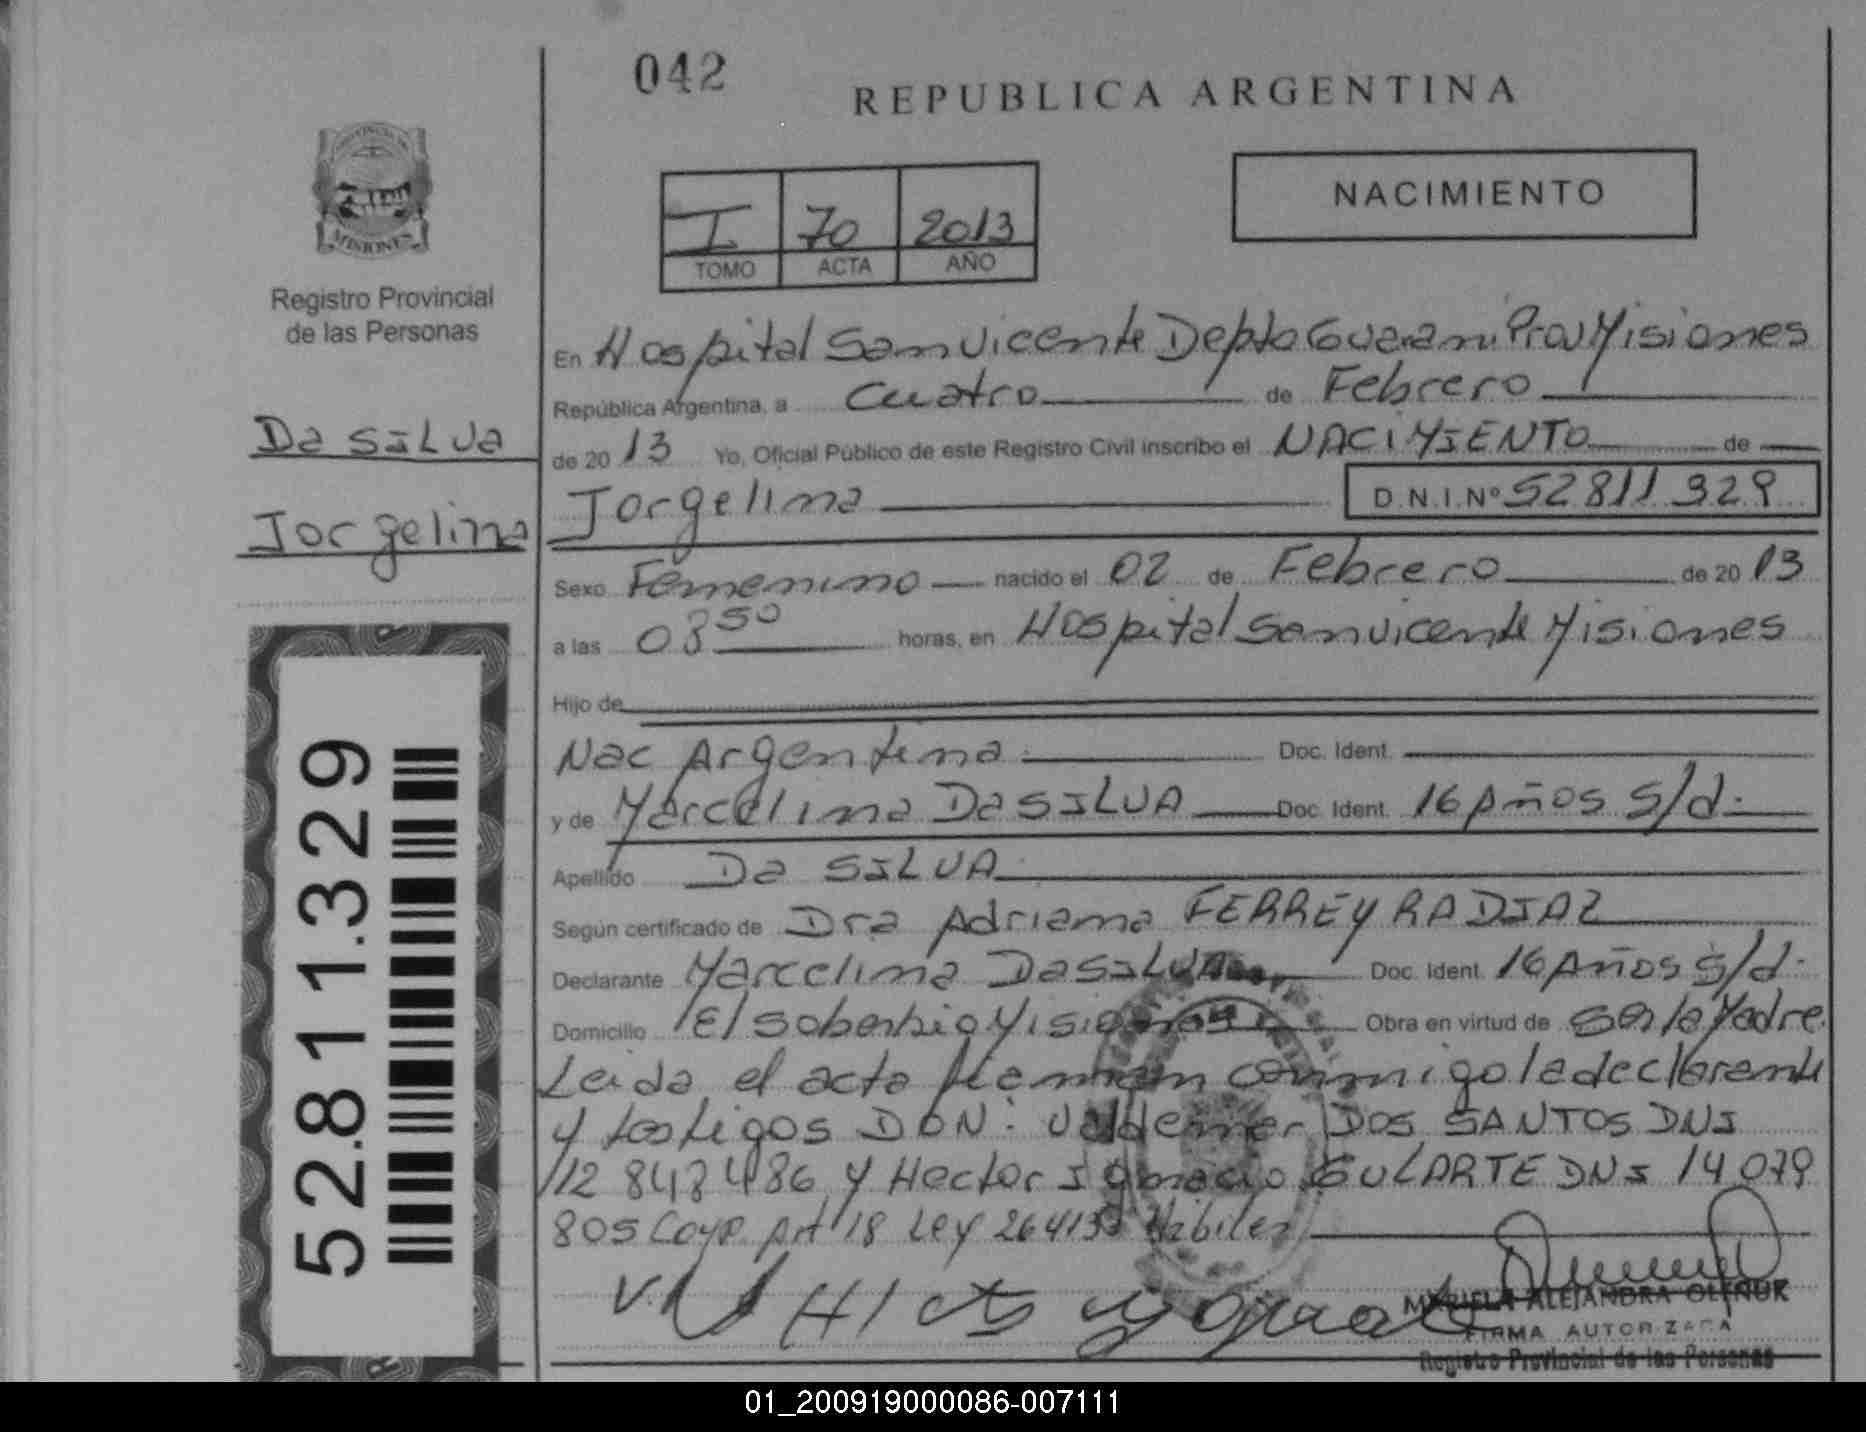 042
REPUBLICA ARGENTINA
NACIMIENTO
I 70 2013
TOMO ACTA AÑO
PROVINCIA DE
MISIONES
Registro Provincial
de las Personas
Da SILVA
Jorgelina
52.811.329
En Hospital San Vicente Depto Guarani Prov Misiones
República Argentina, a cuatro de Febrero
de 2013 Yo, Oficial Público de este Registro Civil inscribo el NACIMIENTO de
Jorgelina D.N.I.Nº 52811329
Sexo Femenino nacido el 02 de Febrero de 2013
a las 08 50 horas, en Hospital San Vicente Misiones
Hijo de
Nac Argentina Doc. Ident.
y de Marcelina Da SILVA Doc. Ident. 16 Años s/d.
Apellido Da SILVA
Según certificado de Dra Adriana FERREYRA DIAZ
Declarante Marcelina Da SILVA Doc. Ident. 16 Años s/d.
Domicilio El soberbio Misiones Obra en virtud de ser la Madre
Leida el acta firman conmigo la declarante
y testigos DON: Valdemar DOS SANTOS DNI
12 848 486 y Hector Ignacio GULARTE DNI 14 079
805 Art 18 Ley 26413 Habiles
MARIELA ALEJANDRA OLENUK
FIRMA AUTORIZADA
Registro Provincial de las Personas
01_200919000086-007111